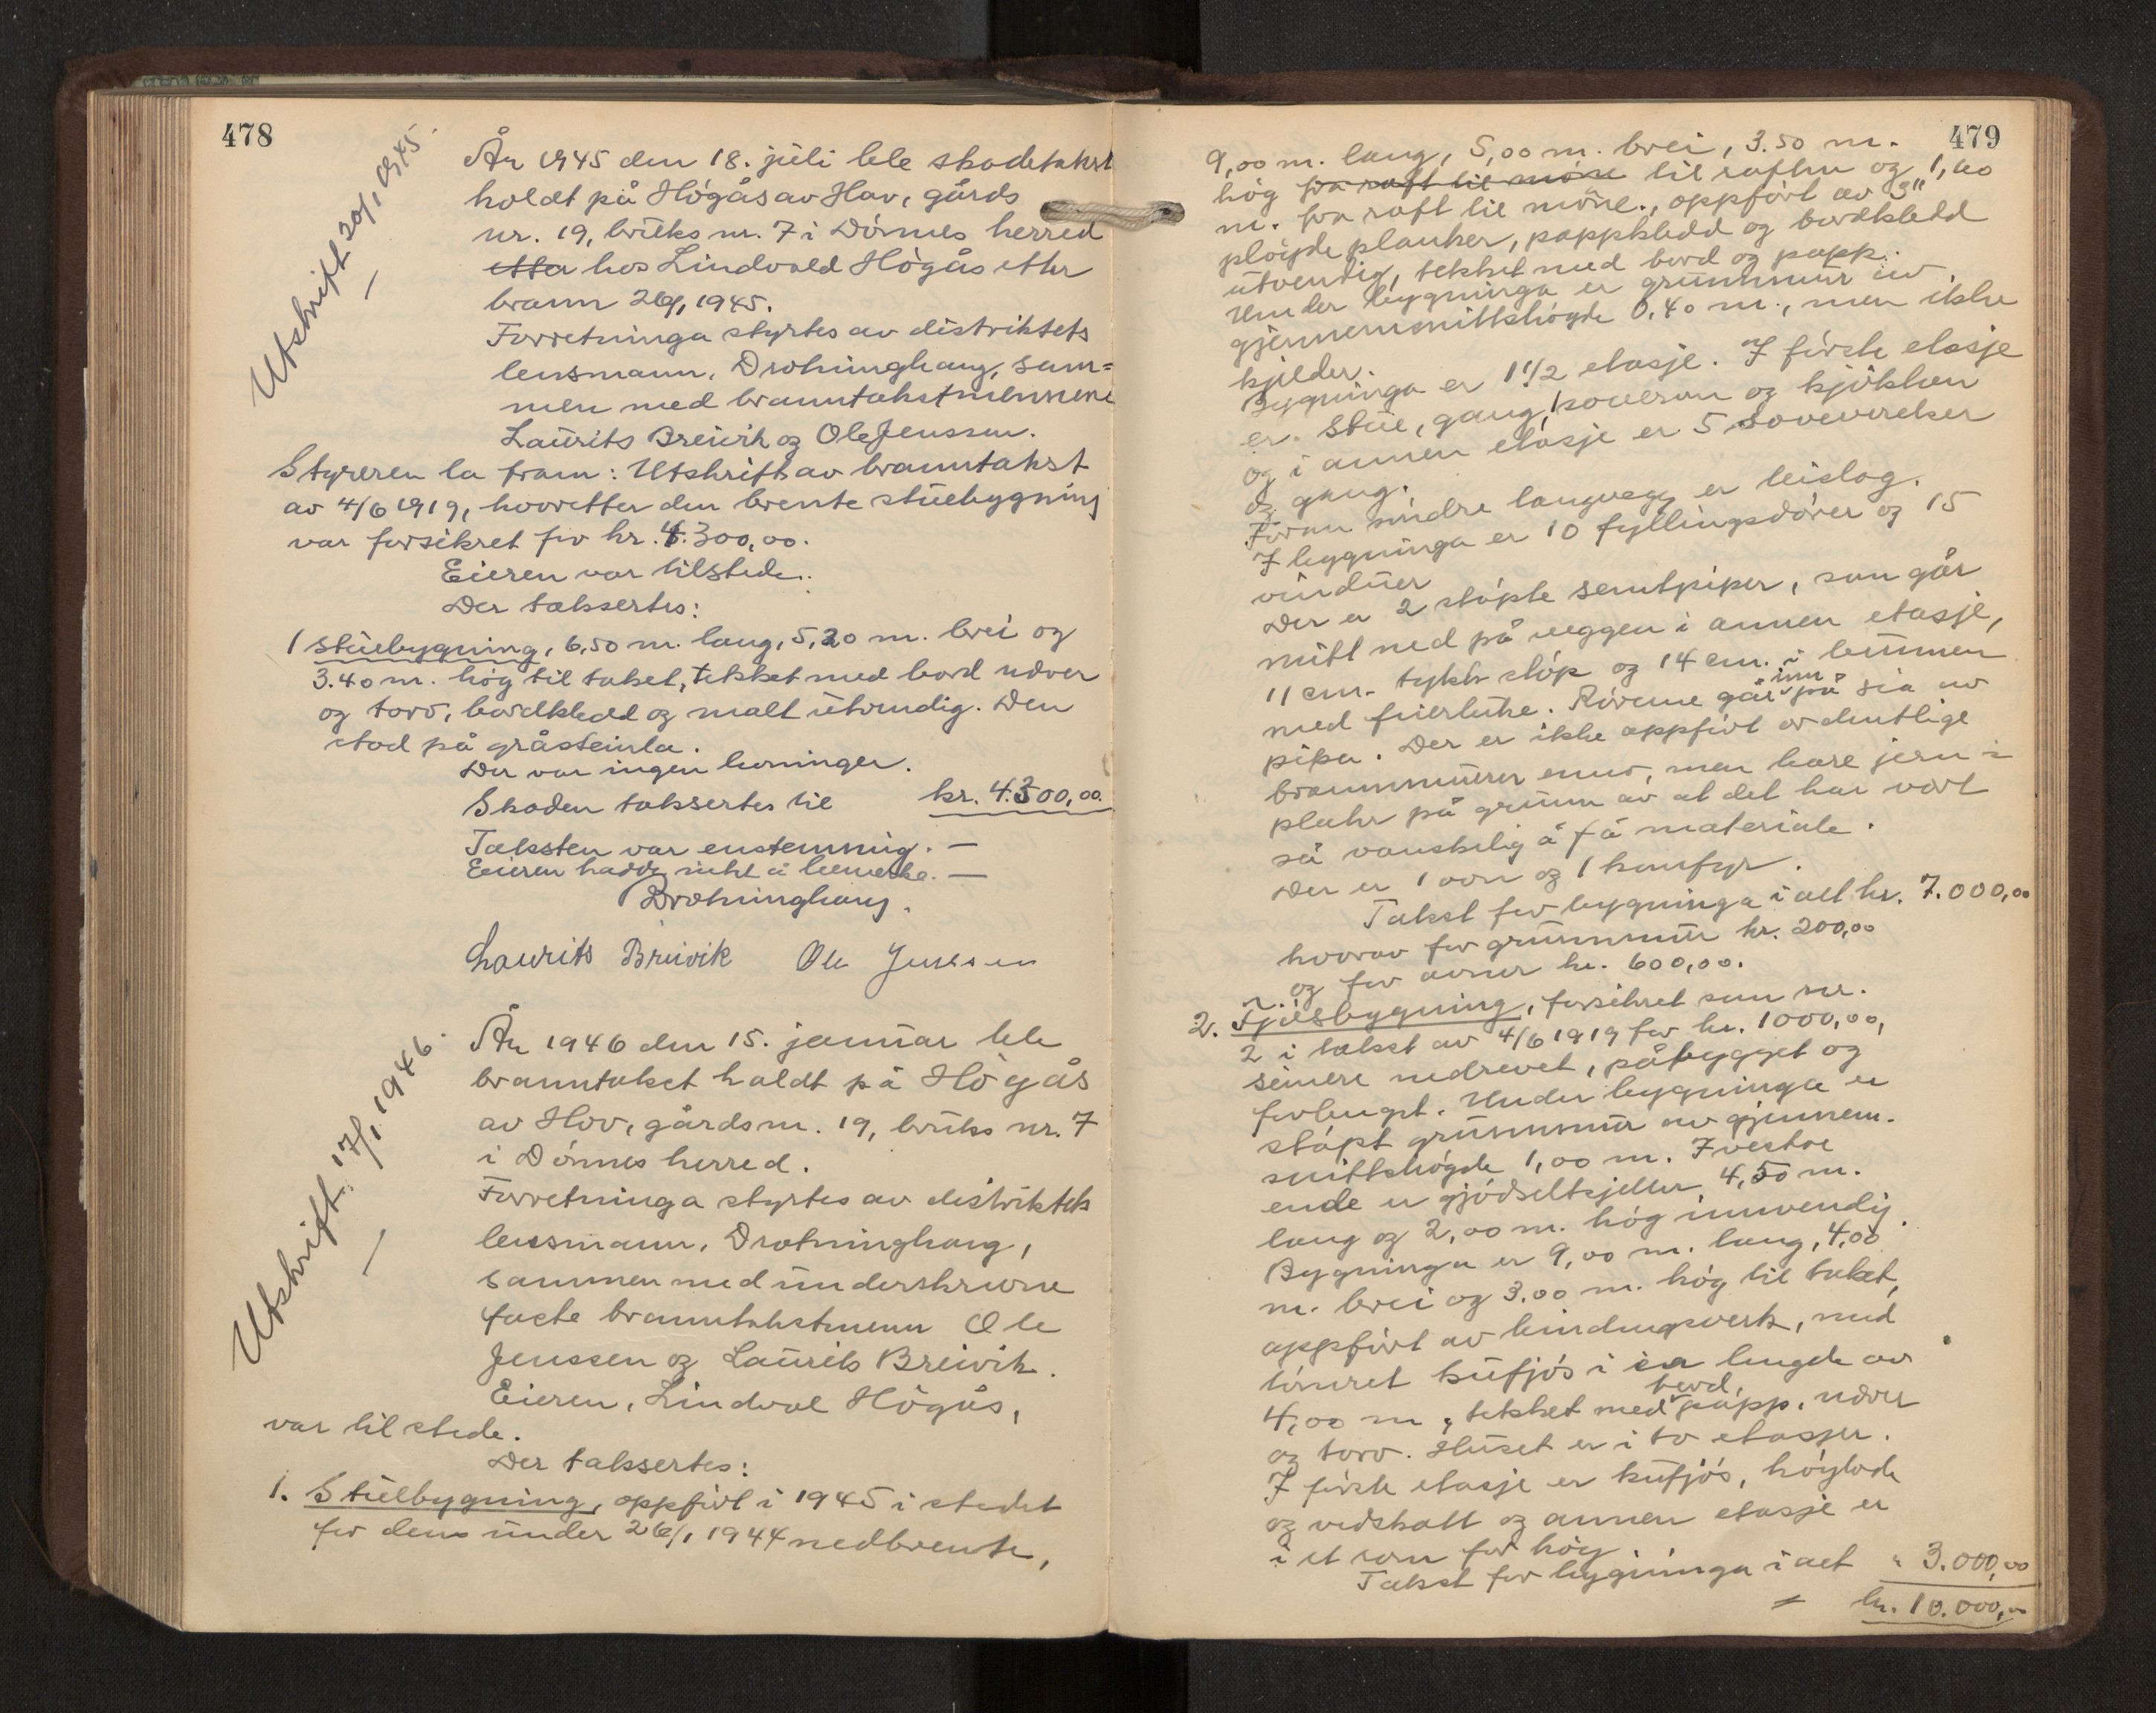 478
Utskrift 20/1 1945.
År 1945 den 18. juli ble skadetakst
holdt på Högås av Hov, gårds
nr. 19, bruks nr. 7 i Dönnes herred
etter hos Lindvald Högås etter
brann 26/1 1945.
Forretninga styrtes av distriktets
lensmann, Drotninghaug, sam=
men med branntakstmennene
Laurits Breivik og Ole Jenssen.
Styreren la fram: Utskrift av branntakst
av 4/6 1919, hvoretter den brente stuebygning
var forsikret for kr. 4.300,00.
Eieren var tilstede.
Der taksertes:
1 stuebygning, 6,50 m. lang, 5,20 m. brei og
3.40 m. hög til taket, tekket med bord never
og torv, bordkledd og malt utvendig. Den
stod på gråsteinla.
Der var ingen levninger.
Skaden taksertes til kr. 4.300,00.
Taksten var enstemmig. —
Eieren hadde intet å bemerke. —
Drotninghaug.
Laurits Breivik Ole Jenssen
Utskrift 17/1 1946.
År 1946 den 15. januar ble
branntakst holdt på Högås
av Hov, gårdsnr. 19, bruks nr. 7
i Dönnes herred.
Forretninga styrtes av distriktets
lensmann, Drotninghaug,
sammen med underskrevne
faste branntakstmenn Ole
Jenssen og Laurits Breivik.
Eieren, Lindval Högås,
var til stede.
Der taksertes:
1. Stuebygning, oppfört i 1945 i stedet
for den under 26/1 1944 nedbrente,
479
9,00 m. lang, 5,00 m. brei, 3.50 m.
hög fra raft til möne til raften og 1,60
m. fra raft til möne., oppfört av 3"
plöyde planker, pappkledd og bordkledd
utvendig, tekket med bord og papp.
Under bygninga er grunnmur av
gjennemsnittshögde 0,40 m., men ikke
kjelder.
Bygninga er 1 1/2 etasje. I förste etasje
er stue, gang, 1 soverom og kjökken
og i annen etasje er 5 soveverelser
og gang.
Foran söndre langvegg er leislag.
I bygninga er 10 fyllingsdörer og 15
vinduer
Der er 2 stöpte sementpiper, som går
mitt ned på veggen i annen etasje,
11 cm. tykk stöp og 14 cm. i bunnen
med feierluke. Rörene går inn på sia av
pipa. Der er ikke oppfört ordentlige
brannmurer enno, men bare jern i
plate på grunn av at det har vört
så vanskelig å få materiale.
Der er 1 ovn og 1 komfyr.
Takst for bygninga i alt kr. 7.000,00
hvorav for grunnmur kr. 200,00
og for ovner kr. 600,00.
2. Fjösbygning, forsikret som nr.
2 i takst av 4/6 1919 for kr. 1000,00,
seinere nedrevet, påbygget og
forlenget. Under bygninga er
stöpt grunnmur av gjennem-
snittshögde 1,00 m. I vestre
ende er gjödselkjeller, 4,50 m.
lang og 2,00 m. hög innvendig.
Bygninga er 9,00 m. lang, 4,00
m. brei og 3.00 m. hög til taket,
oppfört av bindingsverk, med
tömret kufjös i en lengde av
4,00 m, tekket med bord, papp, never
og torv. Huset er i to etasjer.
I förste etasje er kufjös, höylade
og vedskott og annen etasje er
i et rom for höy.
Takst for bygninga i alt " 3.000,00
= kr. 10.000,00